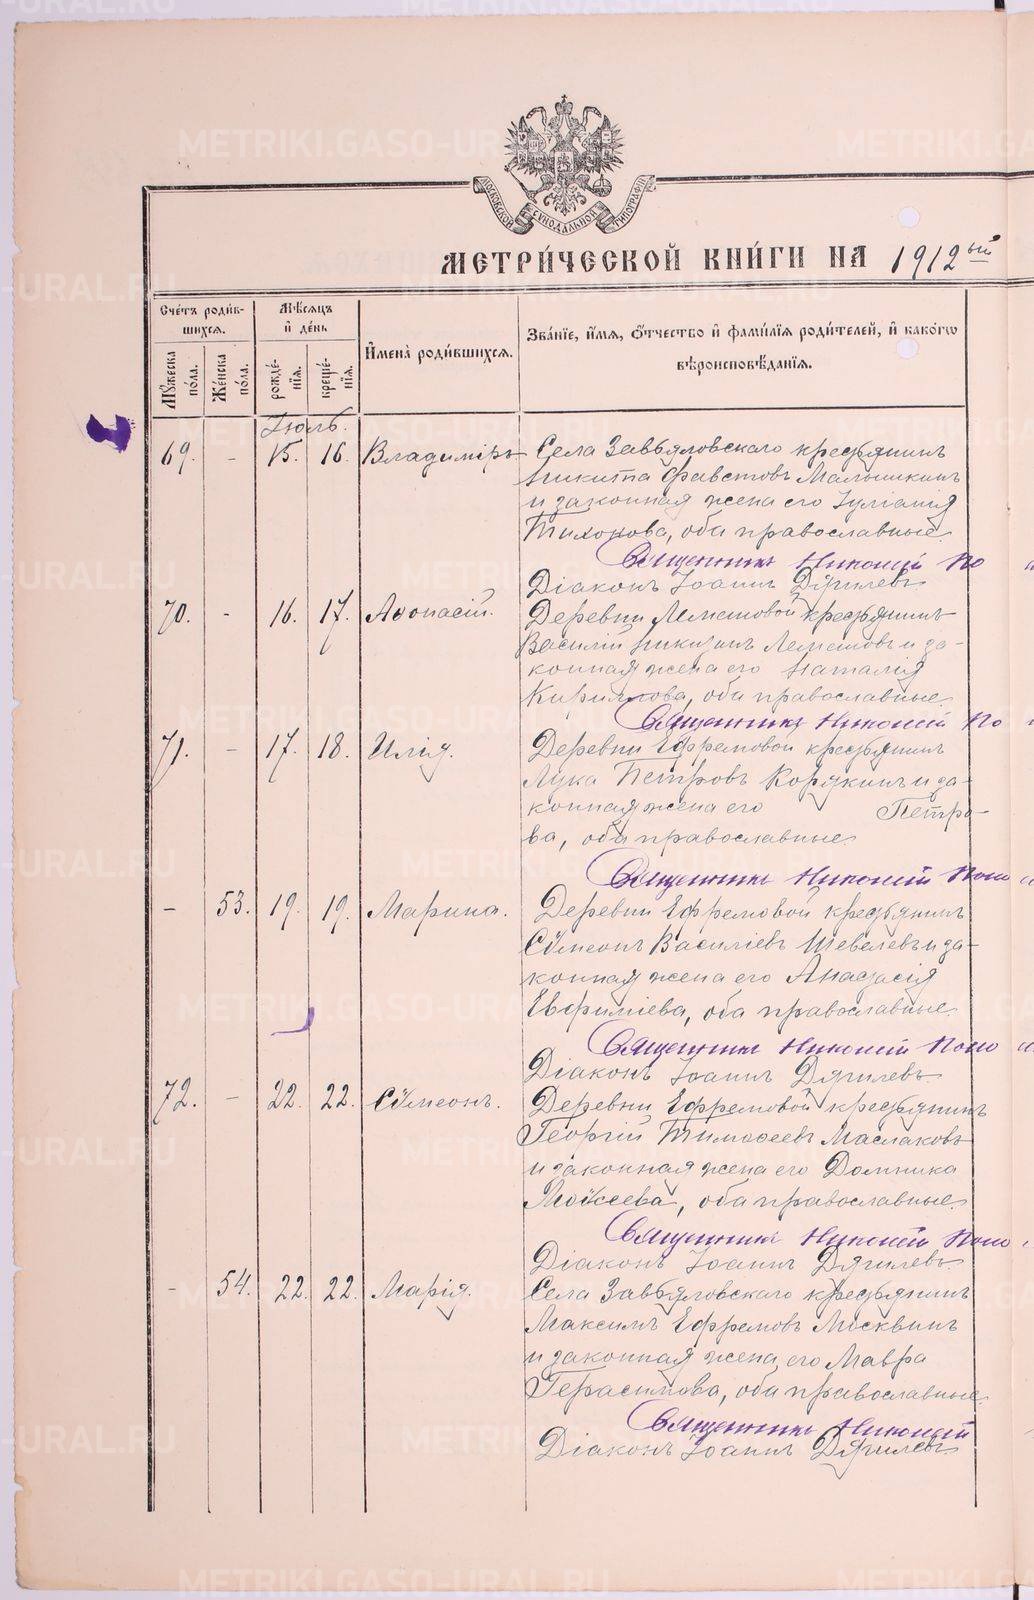 МОСКОВСКОЙ СУНОДАЛЬНОЙ ТИПОГРАФІИ
МЕТРИ́ЧЕСКОЙ КНИ́ГИ НА 1912ый
Сче́тъ роди́в-
шихся.
Мѣ́сяцъ
и҆ де́нь
Мꙋ́жеска
по́ла.
Же́нска
по́ла.
рожде́-
нїя.
креще́-
нїя.
И҆мена̀ роди́вшихся.
Зва́нїе, и҆́мя, ѻ҆́тчество и҆ фами́лїя роди́телей, и҆ како́гѡ
вѣроисповѣ́данїя.
Іюль.
69. - 15. 16. Владиміръ Села Завьяловскаго крестьянинъ
Никита Фавстовъ Малышкинъ
и законная жена его Іуліанія
Тихонова, оба православные.
Священникъ Николай По
Діаконъ Іоаннъ Дягилевъ
70. - 16. 17. Аѳонасій. Деревни Лемешовой крестьянинъ
Василій Никитинъ Лемешовъ и за-
конная жена его Наталія
Кириллова, оба православные.
Священникъ Николай По
71. - 17. 18. Илія. Деревни Ефремовой крестьянинъ
Лука Петровъ Корякинъ и за-
конная жена его Петро-
ва, оба православные.
Священникъ Николай Попо
- 53. 19. 19. Марина. Деревни Ефремовой крестьянинъ
Сѵмеонъ Василіевъ Шевелевъ и за-
конная жена его Анастасія
Евфиміева, оба православные.
Священникъ Николай Попо
Діаконъ Іоаннъ Дягилевъ
72. - 22. 22. Сѵмеонъ. Деревни Ефремовой крестьянинъ
Георгій Тимоѳеевъ Маслаковъ
и законная жена его Домника
Моѵсеева, оба православные.
Священникъ Николай Попо
Діаконъ Іоаннъ Дягилевъ
- 54. 22. 22. Марія. Села Завьяловскаго крестьянинъ
Максимъ Ефремовъ Москвинъ
и законная жена его Мавра
Герасимова, оба православные.
Священникъ Николай
Діаконъ Іоаннъ Дягилевъ
METRIKI.GASO-URAL.RU